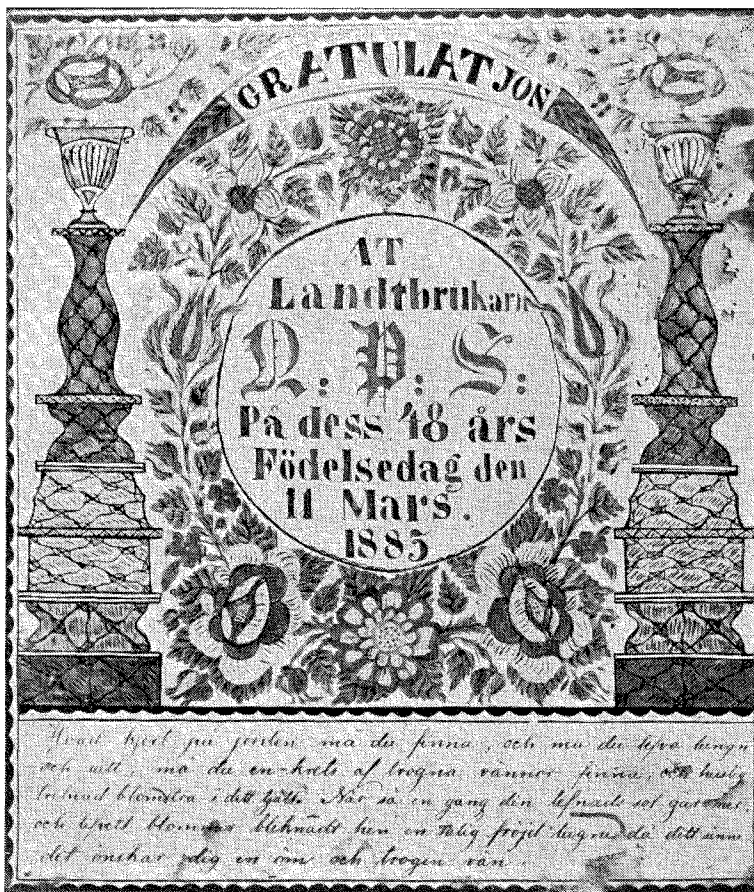 GRATULATJON
AT
Landtbrukarn
N: P: S:
På dess 48 års
Födelsedag den
11 Mars.
1885
Hvad kert på jorden må du finna, och må du lefva länge
och väl, må du en krets af trogna vänner finna, och huslig
blomstra i ditt tjäll. När så en gång den lefnads sol går ner
och hvart blomma bleknadt hen en rolig fröjd ditt sinne
det önskar dig en öm och trogen vän.